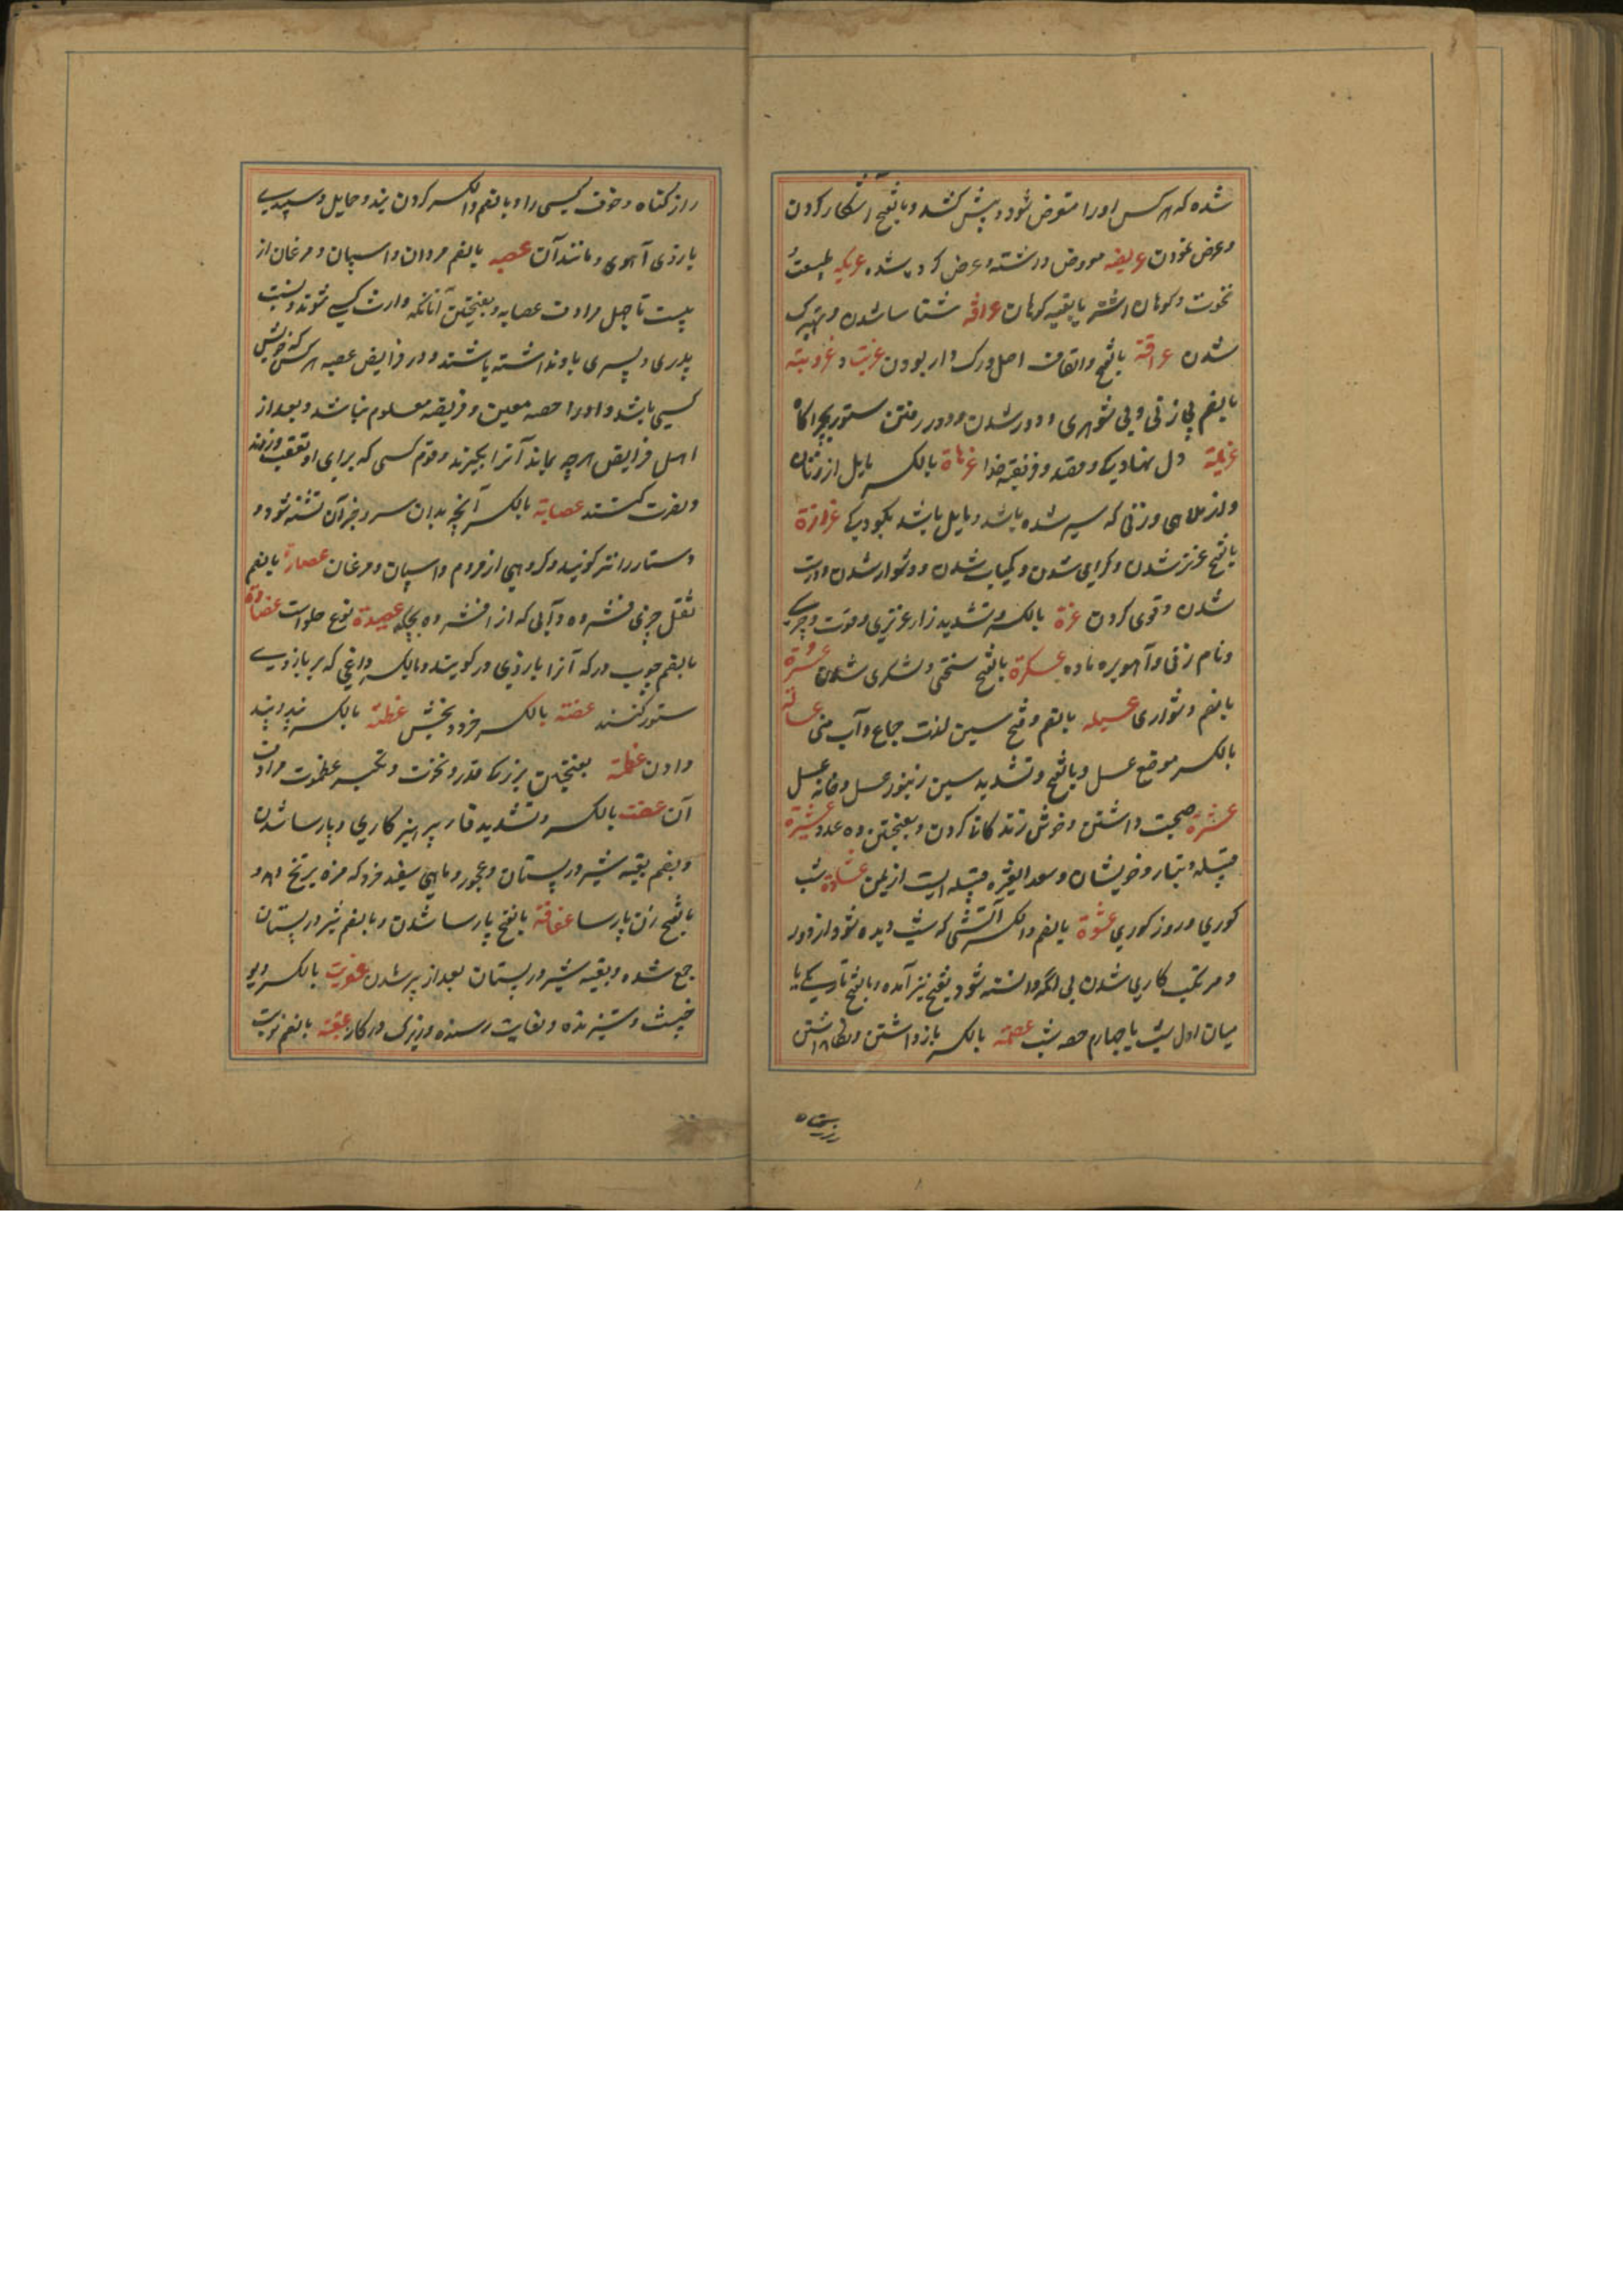 شده که هر کس اورا متعرض شود و پیش کشد و بالفتح آشکار کردن
و عرض نمودن عریضه معروض داشته و عرض کرده شده عریکه طبیعت و
نخوت و کوهان اشتر یا بقیه کوهان عرافه شناسا شدن و مهترک
شدن عراقة بالفتح واتفاق اصل ورک دار بودن عزبت و عزوبته
بالضم بی زنی و بی شوهری و دور شدن و دور رفتن ستور بچراکاه
عزیمة دل نهادیکے و مقصد و فریضه خدا عزهاة بالکسر مایل از زنان
و از ملاهی و زنی که سیر شده باشد و مایل باشد بکودکی عزازة
بالفتح عزیز شدن و کرامی شدن و کمیاب شدن و دشوار شدن و درشت
شدن و قوی کردن عزة بالکسر و تشدید زار عزیزی و قوت و چربی
و نام زنی و آهو بره ماده عسکرة بالفتح سختی و لشکری شدن عسرة
بالضم دشواری عسیله بالضم و فتح سین لذت جماع و آب منی عساله
بالکسر موضع عسل و بالفتح و تشدید سین زنبور عسل و خانه عسل
عشرة صحبت داشتن و خوش زندکانی کردن و بفتحتین ده عدد عشیرة
قبیله و تبار و خویشان و سعد العشیره قبیله ایست از یمن عشاوة شب
کوری و روز کوری عشوة بالضم والکسر آتشی که شب دیده شود از دور
و مرتکب کاری شدن بی انکه دانسته شود بفتح نیز آمده و بالفتح تاریکے یا
میان اول شب یا چهارم حصه شب عصمة بالکسر بازداشتن و نکاهداشتن
راز کناه و خوف کیسی را و بالضم والکسر کردن بند و حمایل و سپیدیے
بازوی آهوی و مانند آن عصبه بالضم مردان و اسپان و مرغان از
بیست تا چهل مرادف عصابه و بفتحتین آنانکه وارث کسے شوند و نسبت
پدری و پسری باو نداشته باشند و در فرایض عصبه هر کس که خویش
کسی باشد و اورا حصه معین و فریضه معلوم نباشد و بعد از
اهل فرایض هر چه بماند آنرا بگیرند و قوم کسی که برای او تعصب ورزند
و نصرت کنند عصابة بالکسر آنچه بدان سر و جز آن بسته شود و
دستار را نیز کویند و کروهی از مردم و اسپان و مرغان عصارة بالضم
ثقل چیزی فشرده و آبی که از افشرده بچکد عصیدة نوع حلواست عضادة
بالضم چوب در که آنرا بازوی در کویند و بالکسر داغی که بر بازوے
ستور کنند عضة بالکسر فرد و بخش عظته بالکسر پند و پند
دادن عظمة بفتحتین بزرکی قدر و نخوت و تکبر عظموت مرادف
آن عفت بالکسر و تشدید فا و پرهیز کاری و پارسا شدن
و بضم بقیه شیر در پستان و عجوز و ماهی سفید خرد که مزه برنج دهد و
بالفتح زن پارسا عفافة بالفتح پارسا شدن و بالضم شیر در پستان
جمع شده و بقیه شیر در پستان بعد از پر شدن عفریت بالکسر دیو
خبیث و ستیزنده و بغایت رسنده و زیرک در کار عقبة بالضم نوبت